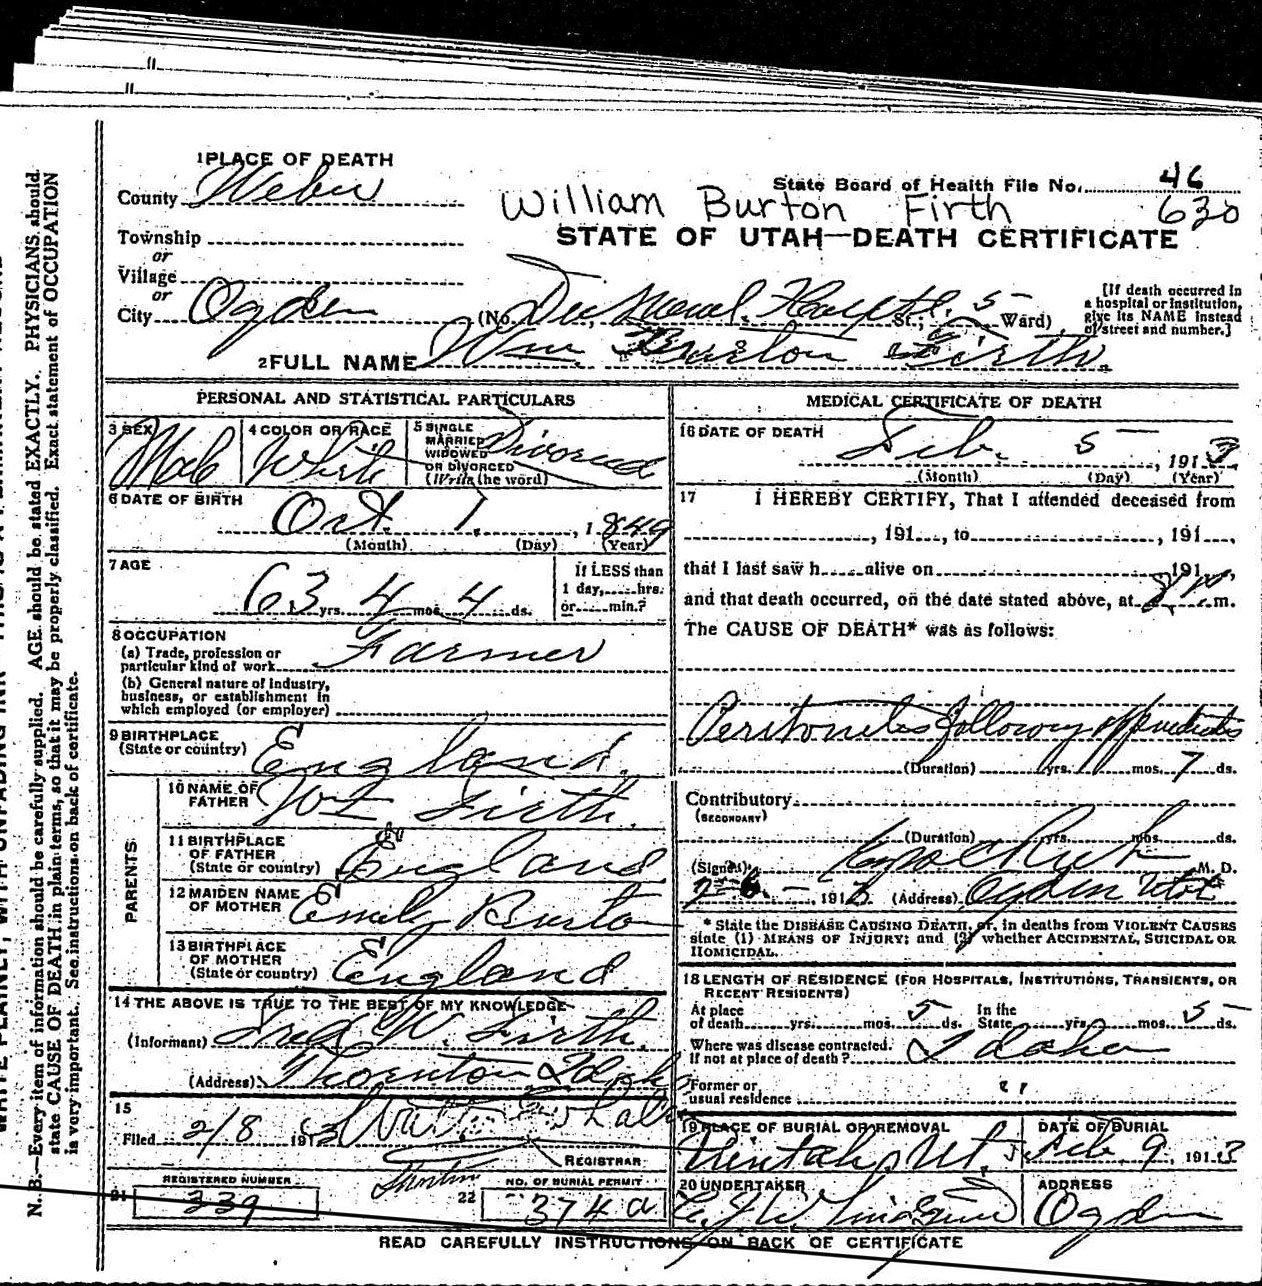 1 PLACE OF DEATH
County Weber
State Board of Health File No. 46
630
William Burton Firth
STATE OF UTAH—DEATH CERTIFICATE
Township
or
Village
or
City Ogden (No. Dee Memal. Hospt. St.; 5 Ward)
[If death occurred in a hospital or institution, give its NAME instead of street and number.]
2 FULL NAME Wm. Burton Firth.
PERSONAL AND STATISTICAL PARTICULARS
3 SEX Male
4 COLOR OR RACE White
5 SINGLE MARRIED WIDOWED OR DIVORCED (Write the word) Divorced
6 DATE OF BIRTH Oct. 1, 1849
(Month) (Day) (Year)
7 AGE 63 yrs. 4 mos. 4 ds.
If LESS than 1 day,....hrs. or....min.?
8 OCCUPATION
(a) Trade, profession or particular kind of work Farmer
(b) General nature of industry, business, or establishment in which employed (or employer)
9 BIRTHPLACE (State or country) England.
PARENTS
10 NAME OF FATHER Firth.
11 BIRTHPLACE OF FATHER (State or country) England
12 MAIDEN NAME OF MOTHER Emily Burton
13 BIRTHPLACE OF MOTHER (State or country) England
14 THE ABOVE IS TRUE TO THE BEST OF MY KNOWLEDGE
(Informant) Fred W. Firth.
(Address) Thornton Idaho
15
Filed 2/8 1913
REGISTRAR
21 REGISTERED NUMBER 339
22 NO. OF BURIAL PERMIT 374a
MEDICAL CERTIFICATE OF DEATH
16 DATE OF DEATH Feb. 5, 1913
(Month) (Day) (Year)
17 I HEREBY CERTIFY, That I attended deceased from
, 191..., to , 191...,
that I last saw h.....alive on 191...,
and that death occurred, on the date stated above, at 8 P.m.
The CAUSE OF DEATH* was as follows:
Peritonitis following appendicitis
(Duration) yrs. mos. 7 ds.
Contributory (SECONDARY)
(Duration) yrs. mos. ds.
(Signed) M. D.
2-6-, 1913 (Address) Ogden Utah
* State the DISEASE CAUSING DEATH, or, in deaths from VIOLENT CAUSES state (1) MEANS OF INJURY; and (2) whether ACCIDENTAL, SUICIDAL OR HOMICIDAL.
18 LENGTH OF RESIDENCE (FOR HOSPITALS, INSTITUTIONS, TRANSIENTS, OR RECENT RESIDENTS)
At place of death yrs. mos. 5 ds. In the State yrs. mos. 5 ds.
Where was disease contracted. If not at place of death? Idaho
Former or usual residence "
19 PLACE OF BURIAL OR REMOVAL Uintah, Ut.
DATE OF BURIAL Feb. 9, 1913
20 UNDERTAKER
ADDRESS Ogden
READ CAREFULLY INSTRUCTIONS ON BACK OF CERTIFICATE
N. B.—Every item of information should be carefully supplied. AGE should be stated EXACTLY. PHYSICIANS should
state CAUSE OF DEATH in plain terms, so that it may be properly classified. Exact statement of OCCUPATION
is very important. See instructions on back of certificate.